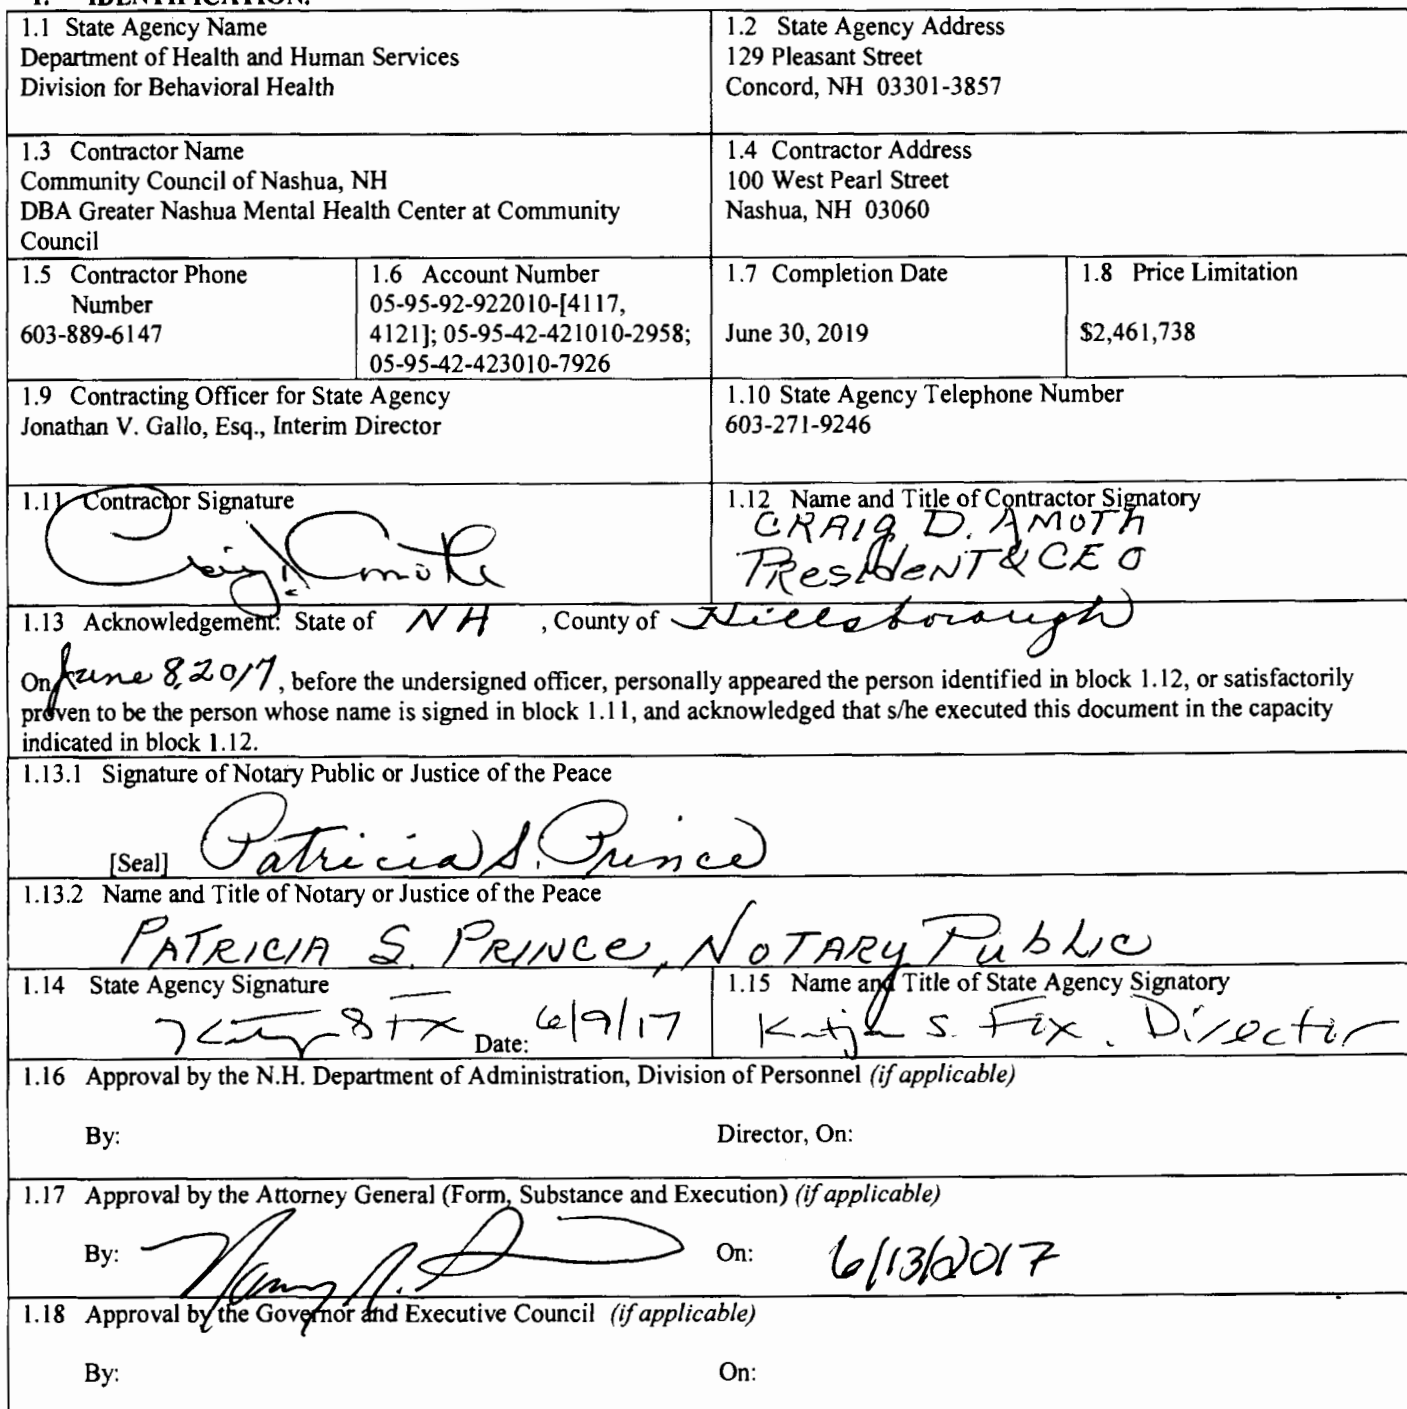 1. IDENTIFICATION.
1.1 State Agency Name
Department of Health and Human Services
Division for Behavioral Health
1.2 State Agency Address
129 Pleasant Street
Concord, NH 03301-3857
1.3 Contractor Name
Community Council of Nashua, NH
DBA Greater Nashua Mental Health Center at Community
Council
1.4 Contractor Address
100 West Pearl Street
Nashua, NH 03060
1.5 Contractor Phone
Number
603-889-6147
1.6 Account Number
05-95-92-922010-[4117,
4121]; 05-95-42-421010-2958;
05-95-42-423010-7926
1.7 Completion Date
June 30, 2019
1.8 Price Limitation
$2,461,738
1.9 Contracting Officer for State Agency
Jonathan V. Gallo, Esq., Interim Director
1.10 State Agency Telephone Number
603-271-9246
1.11 Contractor Signature
Craig D. Amoth
1.12 Name and Title of Contractor Signatory
CRAIG D. AMOTH
PResideNT & CEO
1.13 Acknowledgement: State of NH , County of Hillsborough
On June 8, 2017, before the undersigned officer, personally appeared the person identified in block 1.12, or satisfactorily
proven to be the person whose name is signed in block 1.11, and acknowledged that s/he executed this document in the capacity
indicated in block 1.12.
1.13.1 Signature of Notary Public or Justice of the Peace
[Seal] Patricia S. Prince
1.13.2 Name and Title of Notary or Justice of the Peace
PATRICIA S. PRINCE, NOTARY Public
1.14 State Agency Signature
Date: 6/9/17
1.15 Name and Title of State Agency Signatory
Katja S. Fox, Director
1.16 Approval by the N.H. Department of Administration, Division of Personnel (if applicable)
By: Director, On:
1.17 Approval by the Attorney General (Form, Substance and Execution) (if applicable)
By: On: 6/13/2017
1.18 Approval by the Governor and Executive Council (if applicable)
By: On: